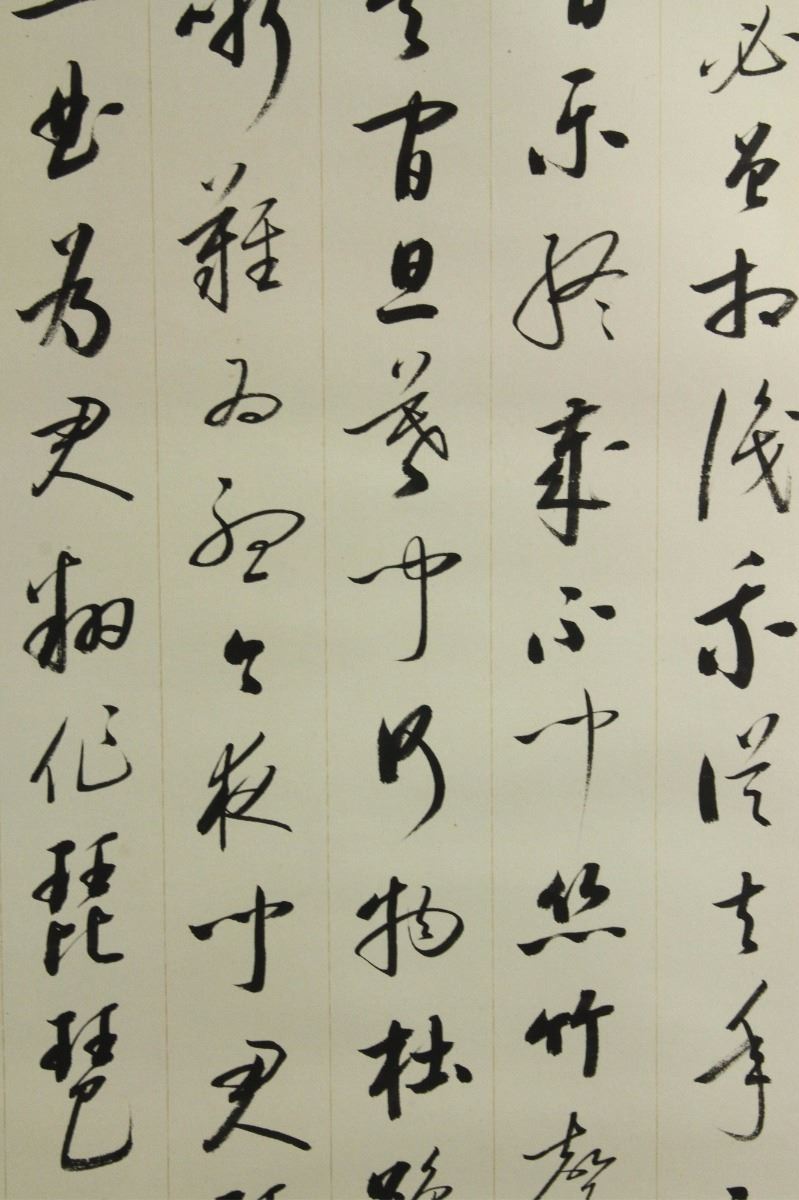 必曾相識我從去年
樂終歲不聞絲竹聲
其間旦暮聞何物杜鵑
哳難為聽今夜聞君
一曲為君翻作琵琶